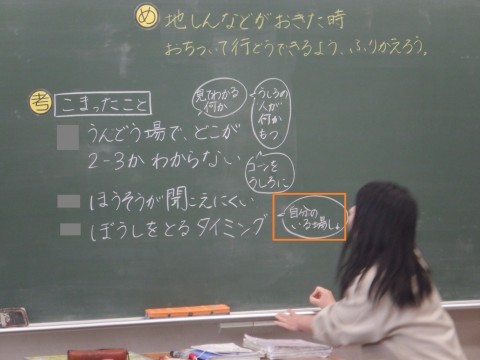 め 地しんなどがおきた時
おちついて行どうできるよう、ふりかえろう。
考 こまったこと
見てわかる
何か
うしろの
人が
何か
もつ
うんどう場で、どこが
2-3かわからない
コーンを
うしろに
ほうそうが聞こえにくい
ぼうしをとるタイミング
自分の
いる場し